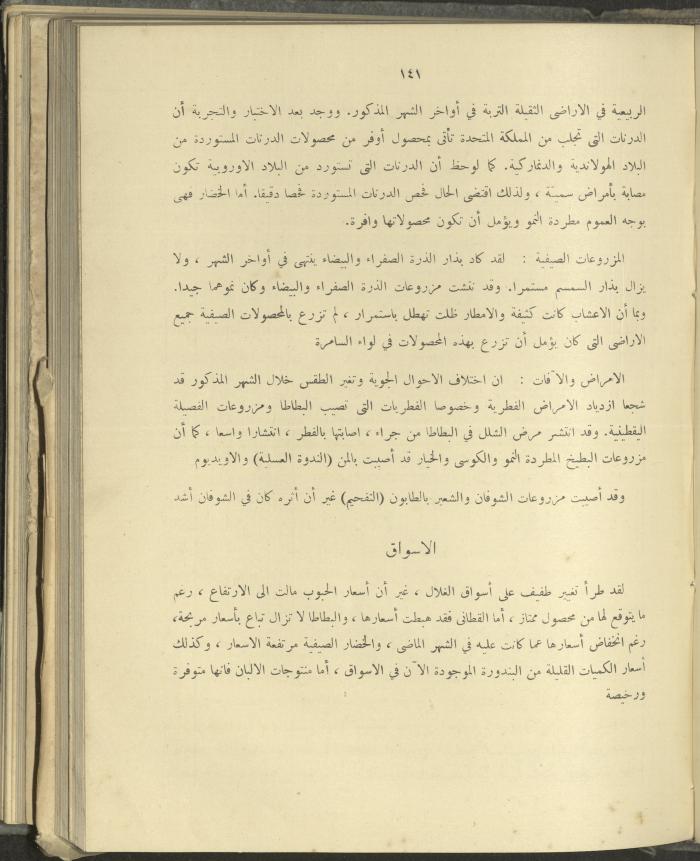 ١٤١
الربيعية في الاراضى الثقيلة التربة في أواخر الشهر المذكور. ووجد بعد الاختبار والتجربة أن
الدرنات التى تجلب من المملكة المتحدة تأتى بمحصول أوفر من محصولات الدرنات المستوردة من
البلاد الهولاندية والدنماركية. كما لوحظ أن الدرنات التى تستورد من البلاد الاوروبية تكون
مصابة بأمراض سميتة ، ولذلك اقتضى الحال فحص الدرنات المستوردة فحصا دقيقا. أما الخضار فهى
بوجه العموم مطردة النمو ويؤمل أن تكون محصولاتها وافرة.
المزروعات الصيفية : لقد كاد بذار الذرة الصفراء والبيضاء ينتهى في أواخر الشهر ، ولا
يزال بذار السمسم مستمرا. وقد نقشت مزروعات الذرة الصفراء والبيضاء وكان نموهما جيدا.
وبما أن الاعشاب كانت كثيفة والامطار ظلت تهطل باستمرار ، لم تزرع بالمحصولات الصيفية جميع
الاراضى التى كان يؤمل أن تزرع بهذه المحصولات في لواء السامرة
الامراض والآفات : ان اختلاف الاحوال الجوية وتغير الطقس خلال الشهر المذكور قد
شجعا ازدياد الامراض الفطرية وخصوصا الفطريات التى تصيب البطاطا ومزروعات الفصيلة
اليقطينية. وقد انتشر مرض الشلل في البطاطا من جراء ، اصابتها بالفطر ، انتشارا واسعا ، كما أن
مزروعات البطيخ المطردة النمو والكوسى والخيار قد أصيبت بالمن (الندوة العسلية) والاويديوم
وقد أصيبت مزروعات الشوفان والشعير بالطابون (التفحيم) غير أن أثره كان في الشوفان أشد
الاسواق
لقد طرأ تغيير طفيف على أسواق الغلال ، غير أن أسعار الحبوب مالت الى الارتفاع ، رغم
ما يتوقع لها من محصول ممتاز ، أما القطانى فقد هبطت أسعارها ، والبطاطا لا تزال تباع بأسعار مربحة،
رغم انخفاض أسعارها عما كانت عليه في الشهر الماضى ، والخضار الصيفية مرتفعة الاسعار ، وكذلك
أسعار الكميات القليلة من البندورة الموجودة الآن في الاسواق ، أما منتوجات الالبان فانها متوفرة
ورخيصة